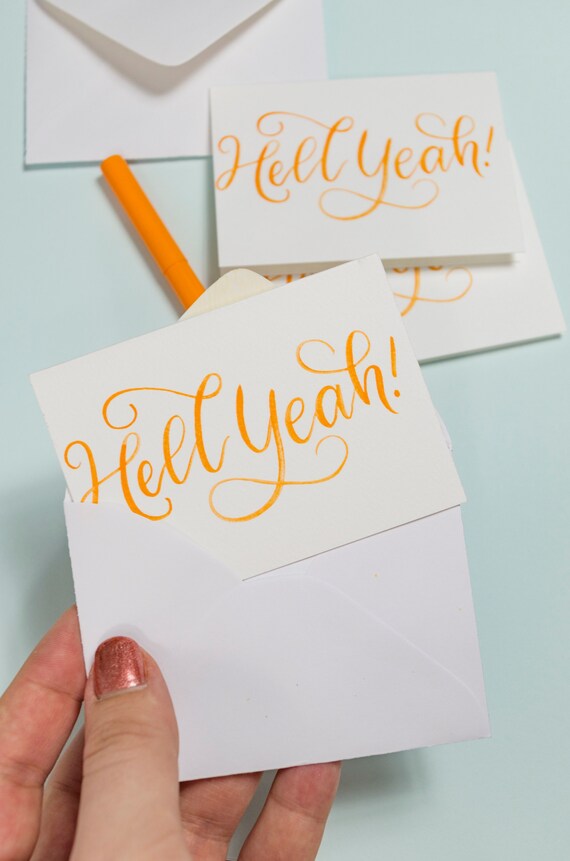 Hell Yeah!
Hell Yeah!